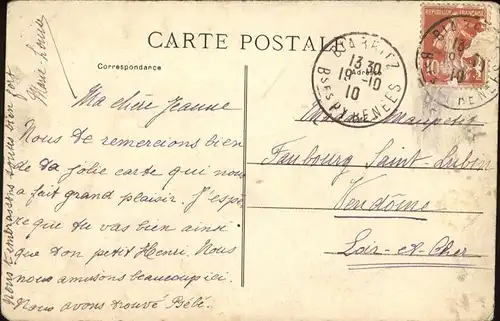 CARTE POSTALE
Correspondance
Adresse
BIARRITZ
13 30
19 - 10
10
Bses PYRENEES
REPUBLIQUE FRANÇAISE
10
Ma chère Jeanne
Nous te remercions bien
de ta jolie carte qui nous
a fait grand plaisir. J'espè
re que tu vas bien ainsi
que ton petit Henri. Nous
nous amusons beaucoup ici.
Nous avons trouvé Bébé.
Nous t'embrassons tous bien fort
Marie-Louise
Maupetit
Faubourg Saint-Lubin
Vendôme
Loir-et-Cher